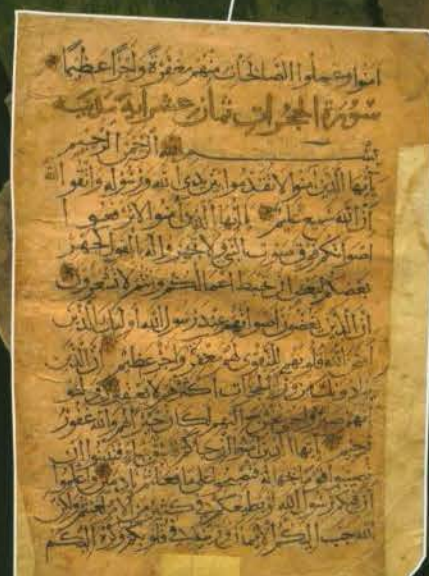 امنوا وعملوا الصالحات منهم مغفرة واجرا عظيما
سورة الحجرات ثمان عشر اية مدنية
بسم الله الرحمن الرحيم
يايها الذين امنوا لا تقدموا بين يدي الله ورسوله واتقوا الله
ان الله سميع عليم يايها الذين امنوا لا ترفعوا
اصواتكم فوق صوت النبي ولا تجهروا له بالقول كجهر
بعضكم لبعض ان تحبط اعمالكم وانتم لا تشعرون
ان الذين يغضون اصواتهم عند رسول الله اولئك الذين
امتحن الله قلوبهم للتقوى لهم مغفرة واجر عظيم ان الذين
ينادونك من وراء الحجرات اكثرهم لا يعقلون ولو
انهم صبروا حتى تخرج اليهم لكان خيرا لهم والله غفور
رحيم يايها الذين امنوا ان جاءكم فاسق بنبا فتبينوا ان
تصيبوا قوما بجهالة فتصبحوا على ما فعلتم نادمين واعلموا
ان فيكم رسول الله لو يطيعكم في كثير من الامر لعنتم ولكن
الله حبب اليكم الايمان وزينه في قلوبكم وكره اليكم